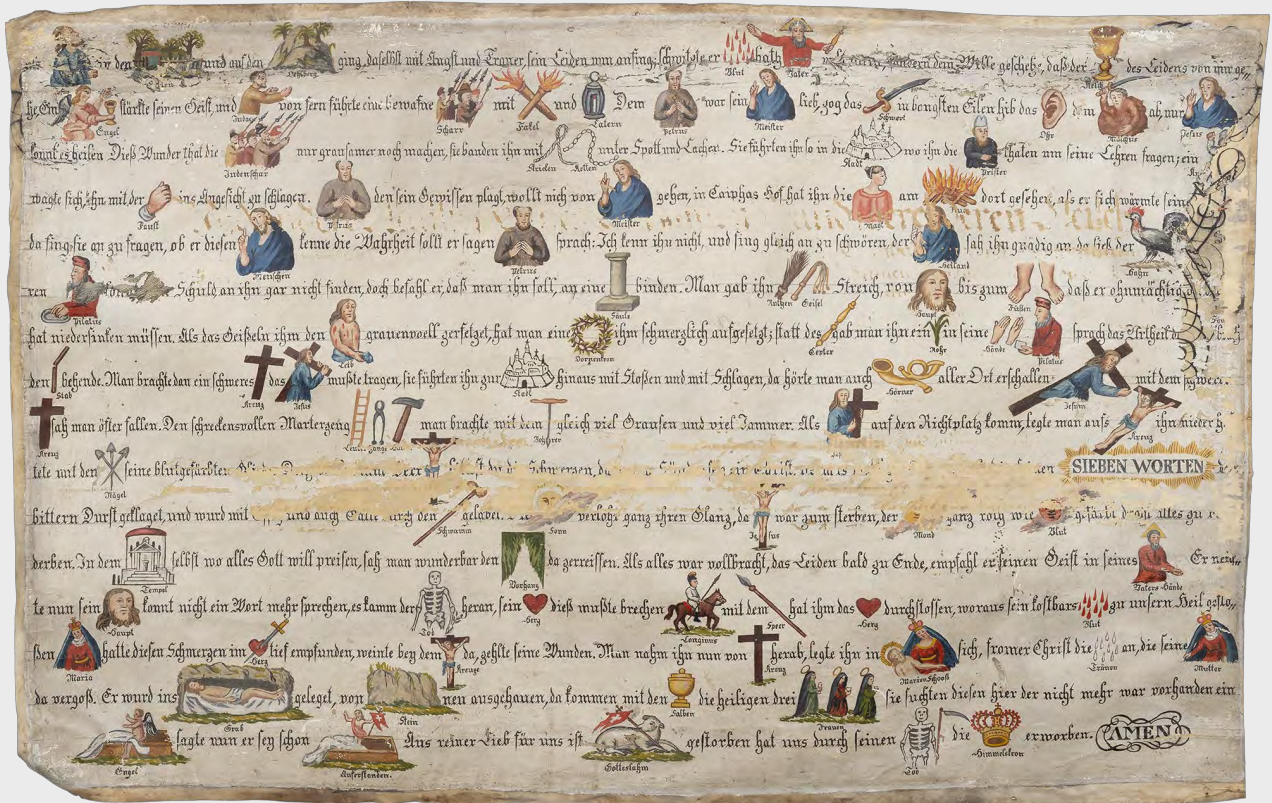 in den Garten und auf den Oehlberg ging, daselbst mit Angst und Trauer, sein Leiden nun anfing; schwitzte er Blut bath Vater dein Wille geschehe, daß der Kelch des Leidens von mir ge„
he Ein Engel stärkte seinen Geist, und Judas von fern führte eine bewafne Schaar mit Fakel und Latern Dem Petrus war sein Meister lieb, zog das Schwert in bongsten Eilen hib das Ohr dem Malchus ab, nur Jesus
konnt es heilen Dieß Wunder that die Judenschar nur grausamer noch machen, sie banden ihn mit Stricken Ketten unter Spott und Lachen. Sie führten ihn so in die Stadt wo ihn die Prister thäten um seine Lehren fragen; ein
wagte sich, ihn mit der Faust ins Angesicht zu schlagen. Petrus den sein Gewissen plagt, wollt nich von Meister gehen, in Cayphas Hof hat ihn die Magt am Feuer dort gesehen, als er sich wärmte
da fing sie an zu fragen, ob er diesen Menschen kenne die Wahrheit sollt er sagen Petrus sprach: Ich kenn ihn nicht, und fing gleich an zu schwören, der Heiland sah ihn gnädig an da ließ der Hahn
ren Pilatus Schuld an ihn gar nicht finden, doch befahl er, daß man ihn soll, an eine Säule binden. Man gab ihn Ruthen Geisel Streich, von Haupt bis zum Füßen daß er ohnmächtig
hat niedersinken müssen. Als das Geißeln ihm den Leib grauenvoll zersetzet, hat man eine Dornenkron ihm schmerzlich aufgesetzt; statt des Cepter gab man ihn ein Rohr in seine Hände Pilatus sprach das Urtheil
den Stab behende. Man brachte dan ein schweres Kreuz das Jesus mußte tragen, sie führten ihn zur Stadt hinaus mit Stoßen und mit Schlagen, da hörte man auch Hörner aller Ort erschallen: Jesum mit dem schwern
Kreuz sah man öfter fallen. Den schreckensvollen Marterzeug man brachte mit dem Bohrer gleich viel Grausen und viel Jammer. Als auf den Richtplatz komm, legte man aufs Kreuz ihn nieder h
tete mit den Nägel seine blutgefärbten Schmerzen, SIEBEN WORTEN
bittern Durst geklaget, und wurd mit und auch durch den Schwamm gelabet. Sonn verlohr ganz ihren Glanz, da Jesus war zum sterben, der Mond ganz roth wie Blut gefärbt alles zu
derben. In dem Tempel selbst wo alles Gott will preisen, sah man wunderbar den Vorhang da zerreissen. Als alles war vollbracht, das Leiden bald zu Ende, empfahl er seinen Geist in seines Vaters-Hände Er neig„
te nun sein Haupt konnt nicht ein Wort mehr sprechen, es kamm der Tod heran, sein Herz dieß mußte brechen Longinus mit dem Speer hat ihm das Herz durchstossen, woraus sein kostbars Blut zu unsern Heil geflo„
ßen Maria hatte diesen Schmerzen im Herz tief empfunden, weinte bey dem Kreuze da, zehlte seine Wunden. Man nahm ihn nun von Kreuz herab, legte ihn in Marien Schooß sich, fromer Christ die Tränen an, die seine Mutter
da vergoß. Er wurd ins Grab geleget, von Stein nen ausgehauen, da kommen mit den Salben die heiligen drei Frauen sie suchten diesen hier der nicht mehr war vorhanden ein
Engel sagte nun er sey schon Auferstanden. Aus reiner Lieb für uns ist Gotteslahm gestorben hat uns durch seinen Tod die Himmelskron erworben. AMEN